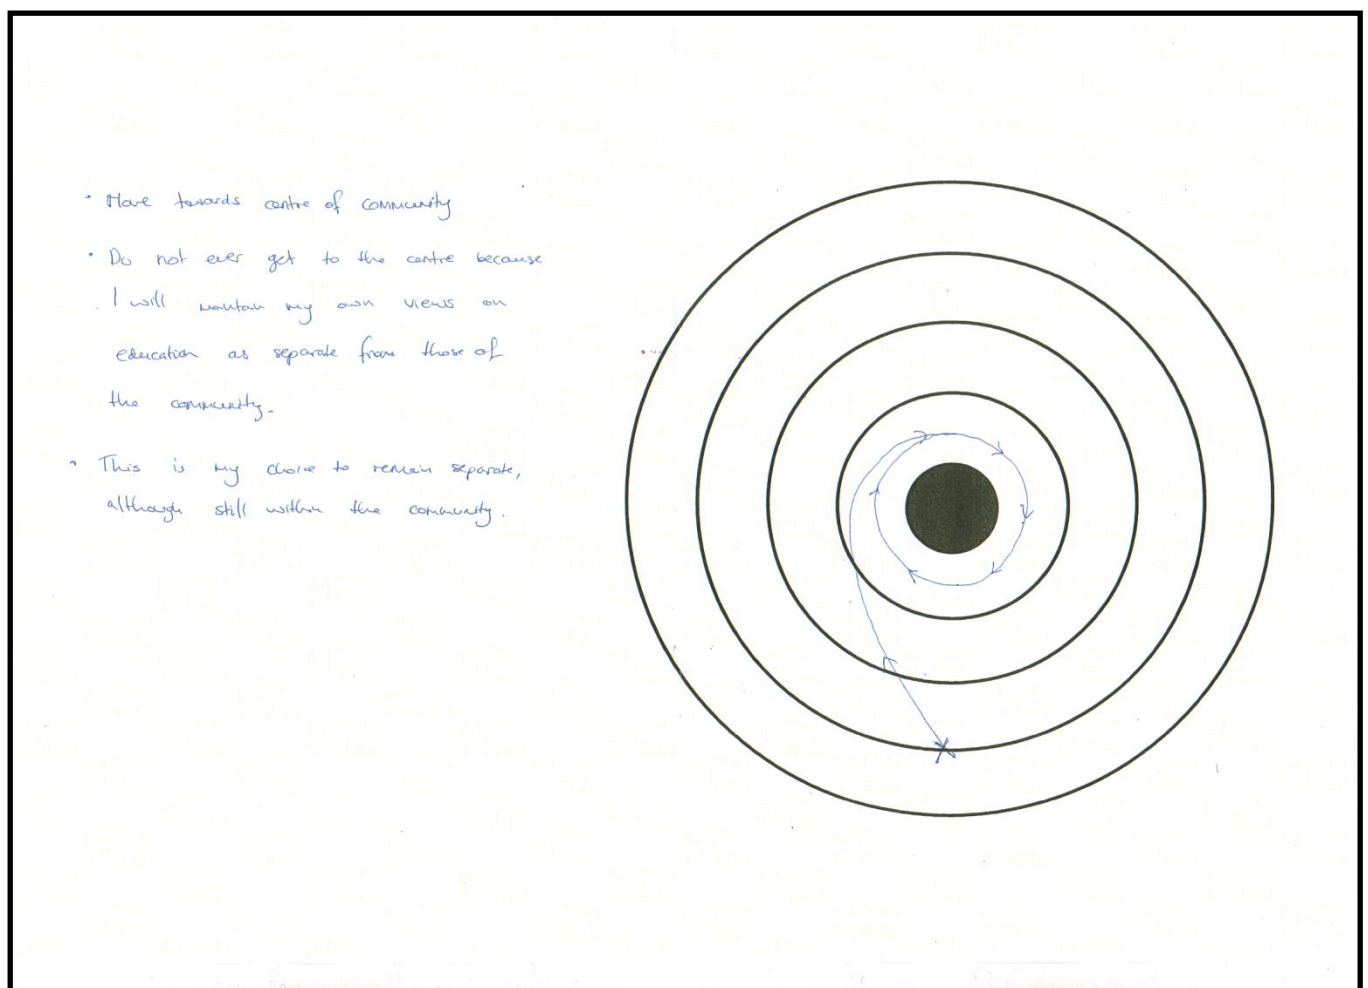 • Move towards centre of community
• Do not ever get to the centre because
I will maintain my own views on
education as separate from those of
the community.
• This is my choice to remain separate,
although still within the community.